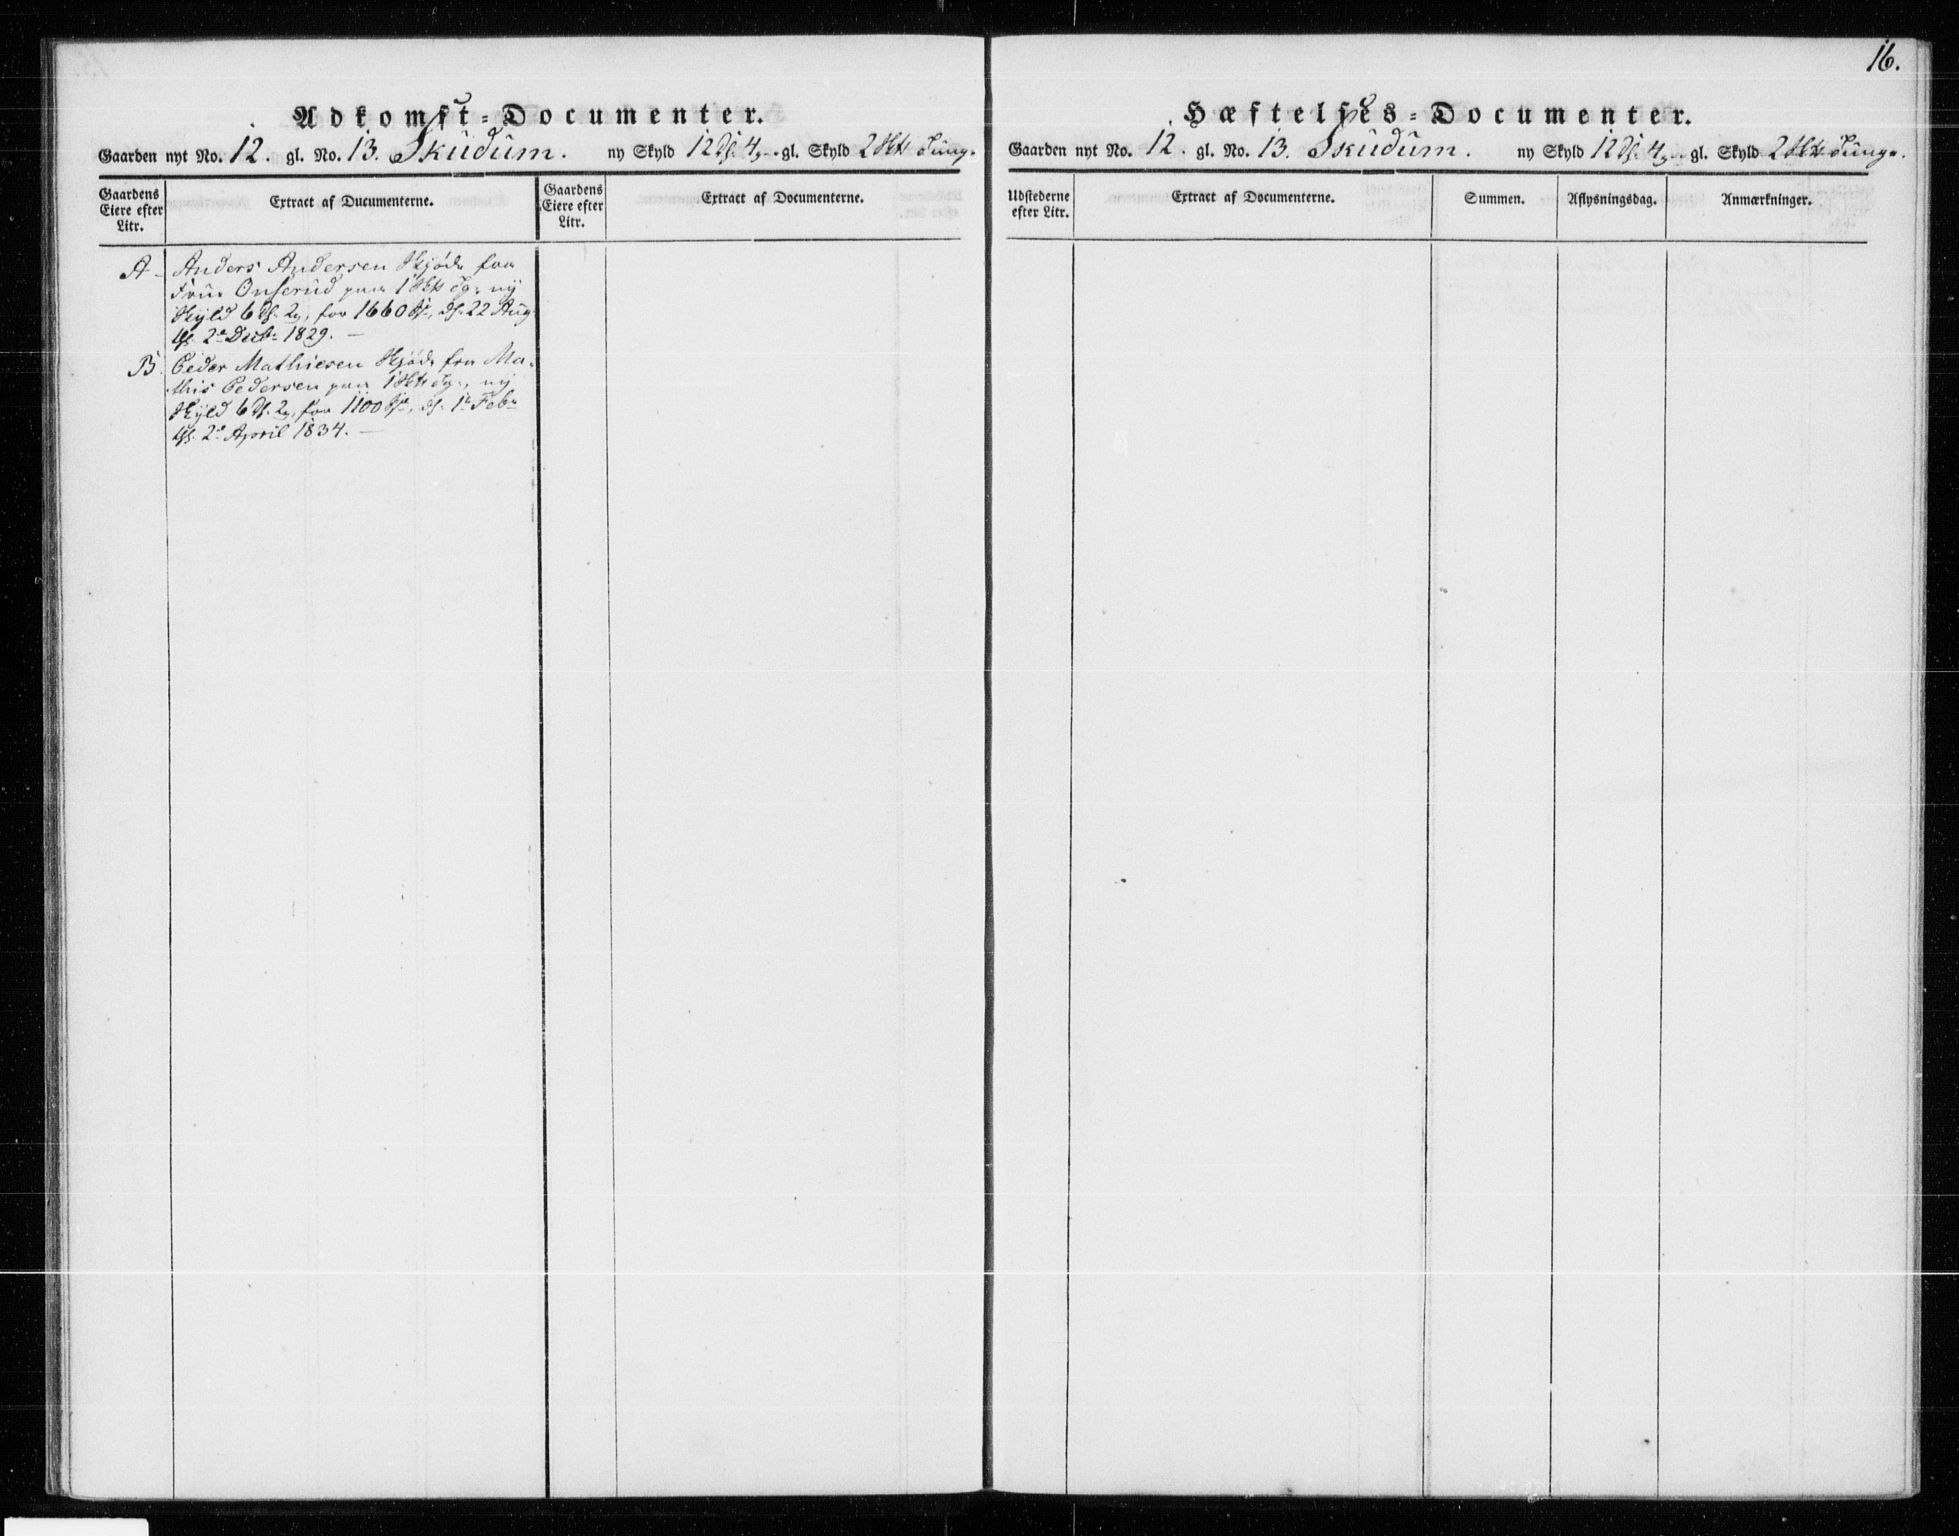 16.
Adkomst-Documenter.
Gaarden nyt No. 12. gl. No. 13. Skudum. ny Skyld 12 4 gl. Skyld 2 Tung.
Gaardens Eiere efter Litr.
Extract af Ducumenterne.
Gaardens Eiere efter Litr.
Extract af Documenterne.
A. Anders Andersen Skjøde fra
Onserud paa 1 ny
Skyld 6 2 for 1660 22 Aug.
2 1829.
B. Peder Mathiesen Skjøde fra Ma-
this Pedersen paa 1 ny
Skyld 6 2 for 1100 1 Feb
2 April 1834.
Hæftelses-Documenter.
Gaarden nyt No. 12. gl. No. 13. Skudum. ny Skyld 12 4 gl. Skyld 2 Tung.
Udstederne efter Litr.
Extract af Documenterne.
Summen.
Aflysningsdag.
Anmærkninger.